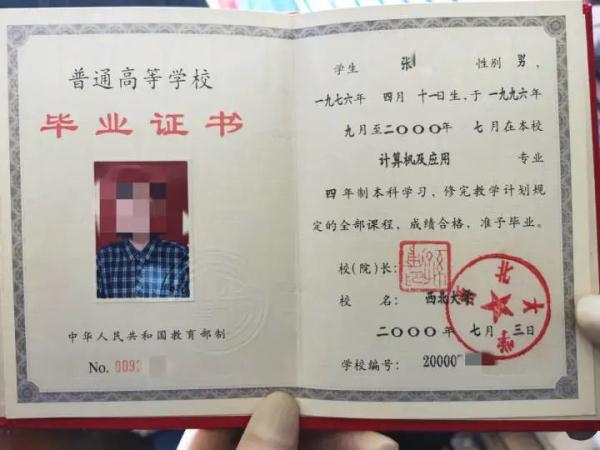 普通高等学校
毕业证书
中华人民共和国教育部制
No. 009
学生 张 性别 男，
一九七六年 四月 十一日生，于一九九六年
九月至二〇〇〇年 七月在本校
计算机及应用 专业
四年制本科学习，修完教学计划规
定的全部课程，成绩合格，准予毕业。
校(院)长：
校 名： 西北大学
二〇〇〇年 七月 三日
学校编号： 20000